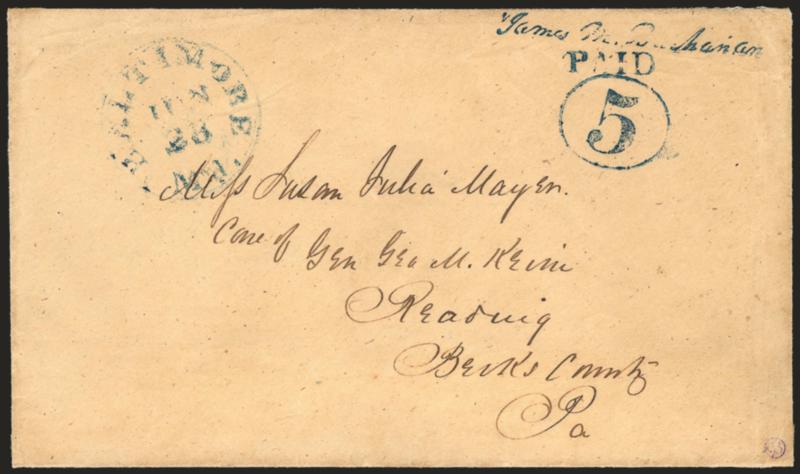 James M. Buchanan
PAID
5
BALTIMORE
JUN
28
MD.
Miss Susan Julia Mayer.
Care of
Gen Geo M. Keim
Reading
Berks County
Pa